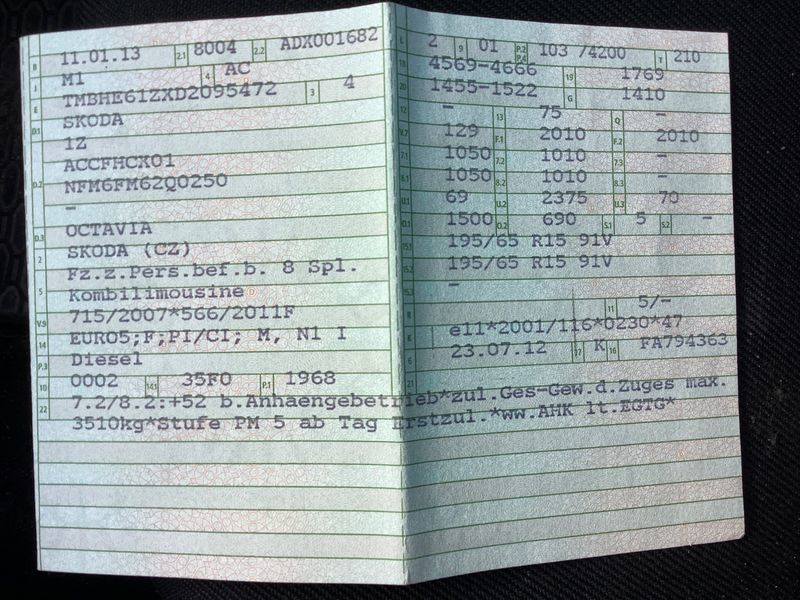 B 11.01.13 2.1 8004 2.2 ADX001682
J M1 4 AC
E TMBHE61ZXD2095472 3 4
D.1 SKODA
1Z
ACCFHCX01
D.2 NFM6FM62Q0250
–
D.3 OCTAVIA
2 SKODA (CZ)
Fz.z.Pers.bef.b. 8 Spl.
5 Kombilimousine
V.9 715/2007*566/2011F
14 EURO5;F;PI/CI; M, N1 I
P.3 Diesel
10 0002 14.1 35F0 P.1 1968
22 7.2/8.2:+52 b.Anhaengebetrieb*zul.Ges-Gew.d.Zuges max.
3510kg*Stufe PM 5 ab Tag Erstzul.*ww.AHK lt.EGTG*
L 2 9 01 P.2 P.4 103 /4200 T 210
18 4569-4666 19 1769
20 1455-1522 G 1410
12 – 13 75 Q –
V.7 129 F.1 2010 F.2 2010
7.1 1050 7.2 1010 7.3 –
8.1 1050 8.2 1010 8.3 –
U.1 69 U.2 2375 U.3 70
O.1 1500 O.2 690 S.1 5 S.2 –
15.1 195/65 R15 91V
15.2 195/65 R15 91V
15.3 –
R 11 5/-
K e11*2001/116*0230*47
6 23.07.12 17 K 16 FA794363
21